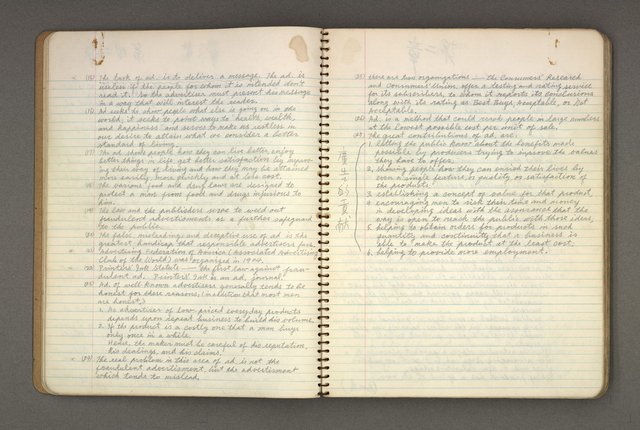 (15) The task of ad. is to deliver a message. The ad. is
useless if the people for whom it is intended don't
read it. So the advertiser must present his message
in a way that will interest the reader.
(16) Ad seeks to show people what else is going on in the
world, it seeks to point ways to health, wealth,
and happiness and serves to make us restless in
our desire to attain what we consider a better
standard of living.
(17) The ad should people how they can live better, enjoy
better things in life get better satisfaction by improv-
ing their way of living and how they may be attained
more easily, more quickly and at less cost.
(18) The various food and drug laws are designed to
protect a man from foods and drugs injurious to
him.
(19) The law and the publishers serve to weed out
fraudulent advertisements as a further safeguard
to the public.
(20) The false, misleading and deceptive use of ad is the
greatest handicap that responsible advertisers face.
Advertising Federation of America (Associated Advertising
Club of the World) was organized in 1904.
Printers' Ink Statute — the first law against frau-
dulent ad. Printers' Ink is an ad. journal.
Ad. of well-known advertisers generally tends to be
honest for these reasons, (in addition that most men
are honest.)
1. An advertiser of low-priced everyday products
depends upon repeat business to build his volume.
2. If the product is a costly one that a man buys
only once in a while.
Hence, the maker must be careful of his reputation,
his dealings, and his claims.
(24) The real problem in this area of ad. is not the
fraudulent advertisement, but the advertisement
which tends to mislead.
(25) There are two organizations — the Consumers' Research
and Consumers' Union, offer a testing and rating service
for its subscribers, to whom it reports its conclusions
along with its rating as Best Buys, Acceptable, or Not
Acceptable.
(26) Ad. is a method that could reach people in large numbers
at the lowest possible cost per unit of sale.
(27) The great contributions of ad. are:
1. letting the public know about the benefits made
possible by producers trying to improve the values
they have to offer.
2. showing people how they can enrich their lives by
even a single feature or quality, or satisfaction of
the products.
3. establishing a concept of value for that product,
4. encouraging men to risk their time and money
in developing ideas with the assurance that the
way is open to reach the public with those ideas,
5. helping to obtain orders for products in such
quantity and continuity that a business is
able to make the product at the least cost.
6. helping to provide more employment.
廣告的貢献